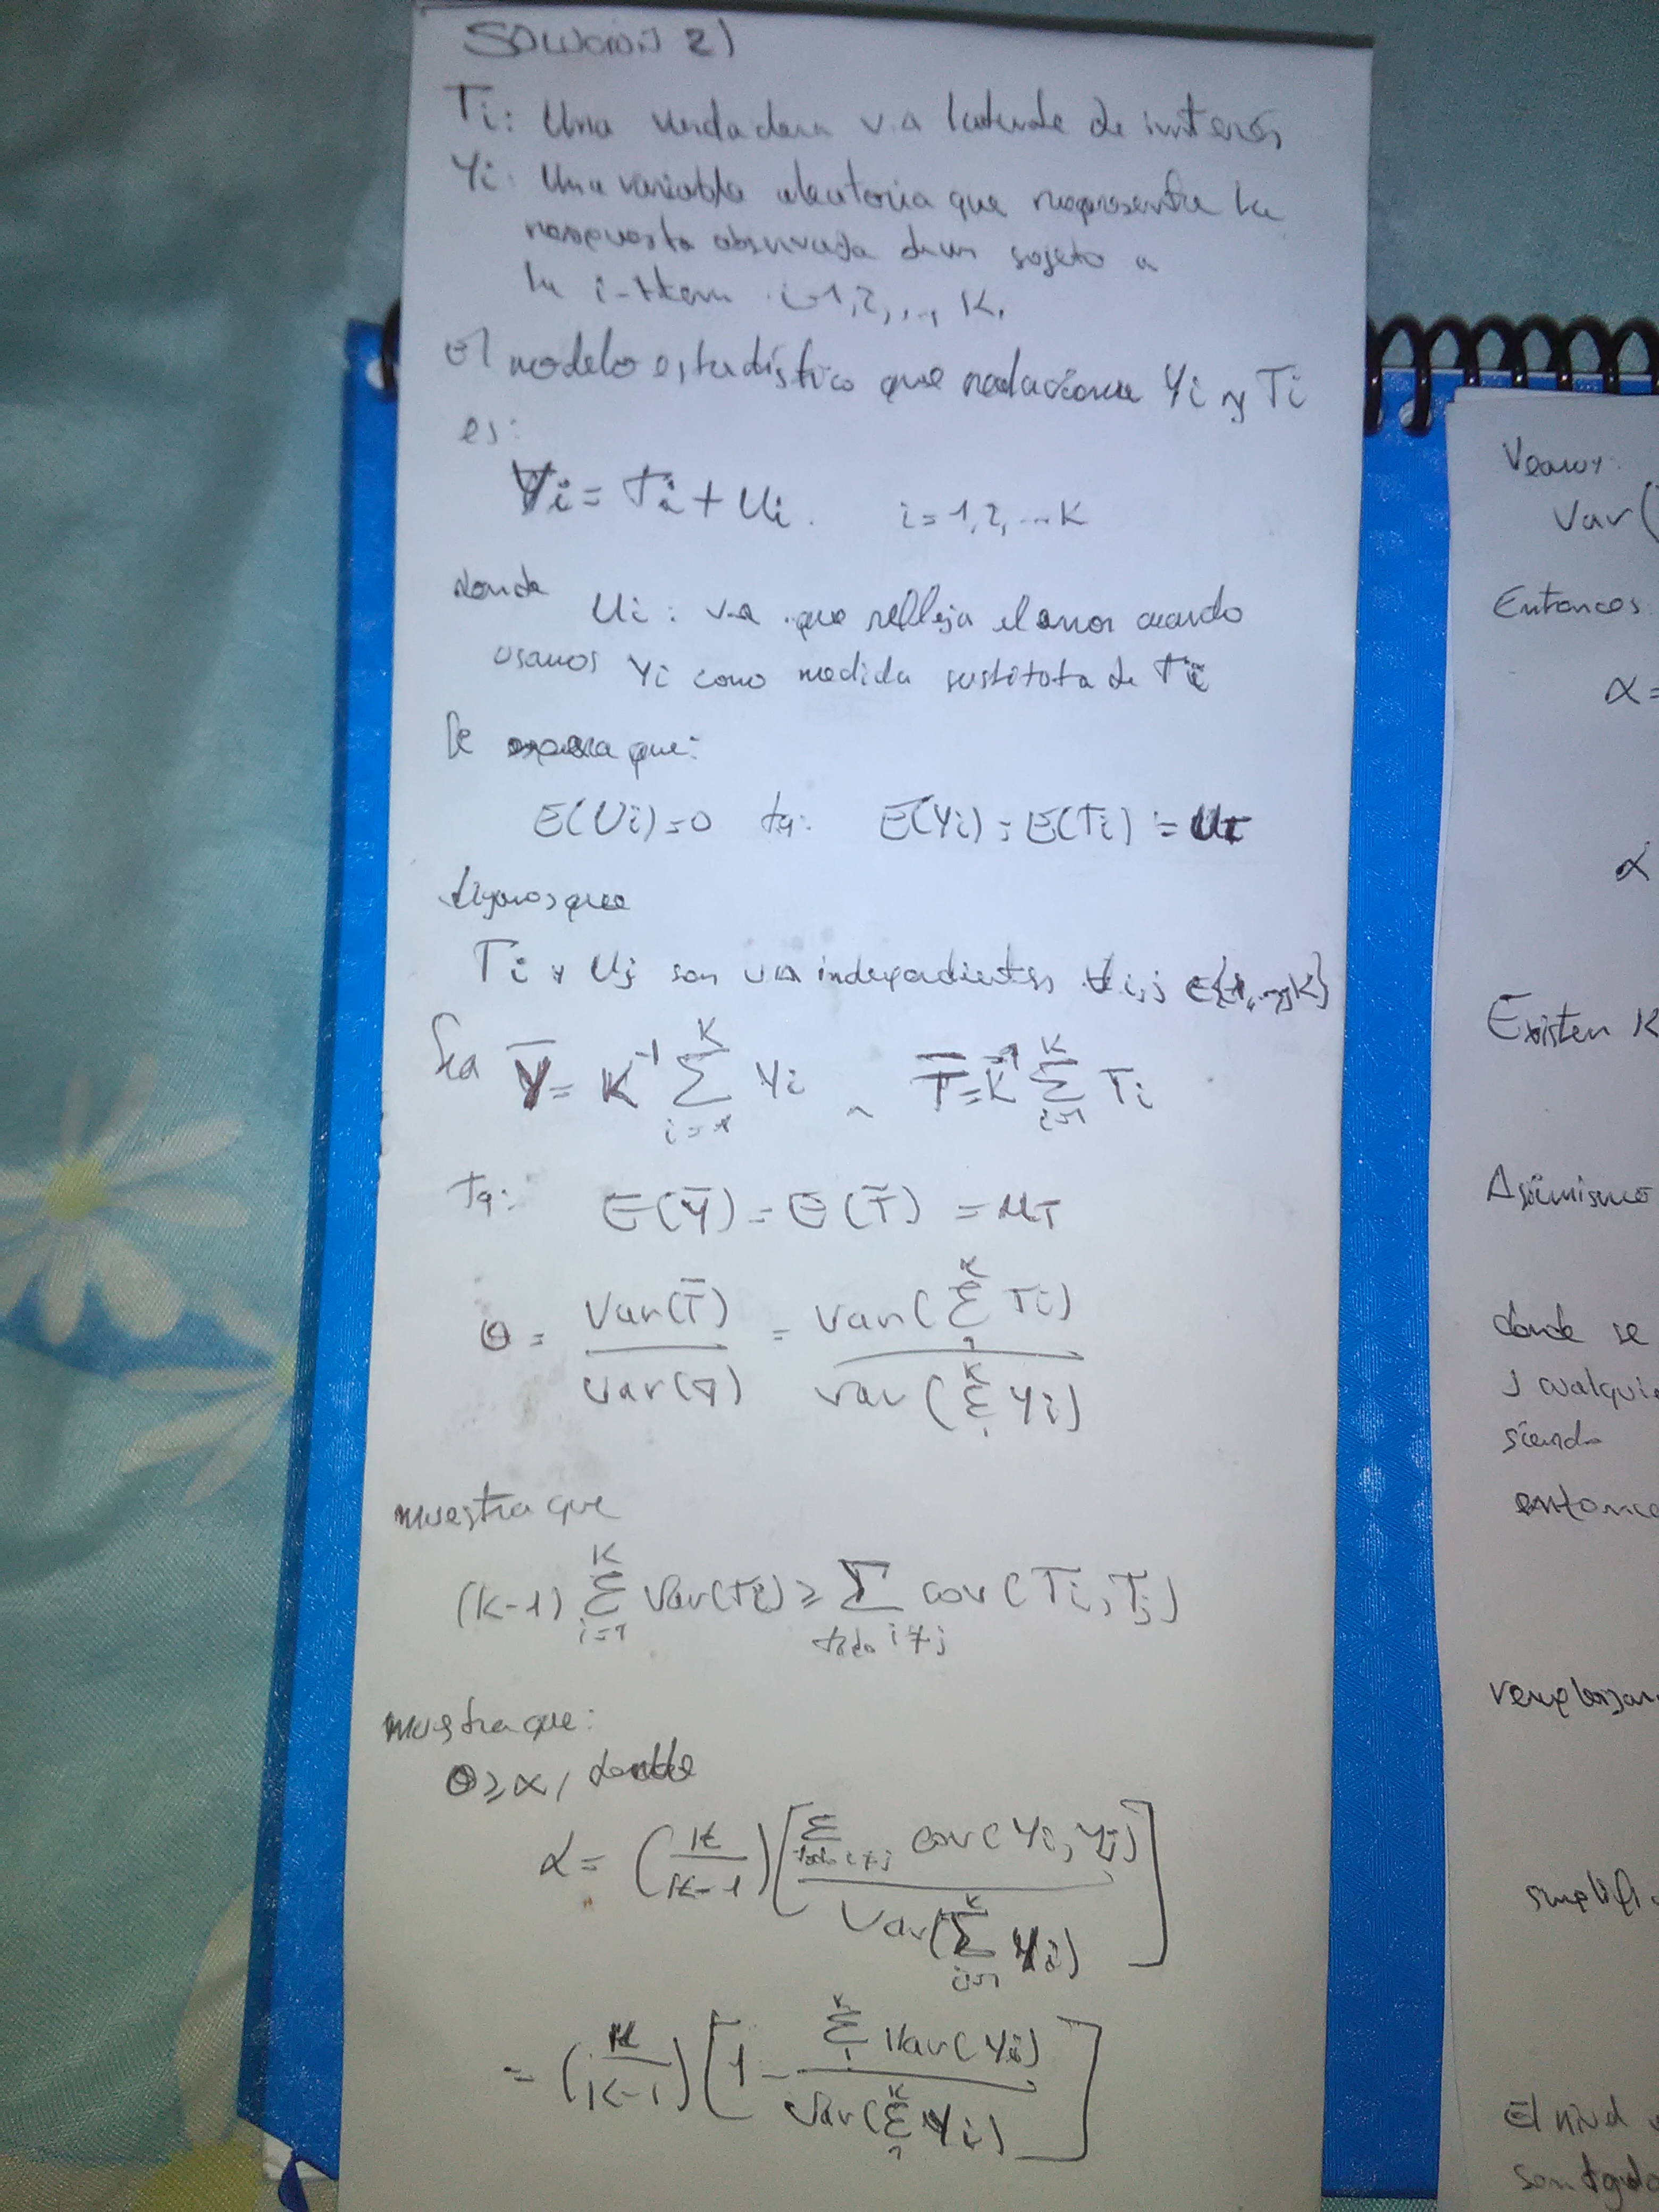 SOLUCIÓN 2)
Ti: Una verdadera v.a latente de interés
Yi: Una variable aleatoria que representa la
respuesta observada de un sujeto a
la i-item i=1,2,..., K.
El modelo estadístico que relaciona Yi y Ti
es:
Yi = Ti + Ui. i=1,2,...K
donde Ui: v.a que refleja el error cuando
usamos Yi como medida sustituta de Ti
Se espera que:
E(Ui)=0 tq: E(Yi)=E(Ti)=μT
que
Ti y Uj son v.a independientes ∀i,j ∈{1,...,K}
Sea Ȳ = K⁻¹ Σ_{i=1}^{K} Yi ^ T̄ = K⁻¹ Σ_{i=1}^{K} Ti
Tq: E(Ȳ) = E(T̄) = μT
θ = Var(T̄) / Var(Ȳ) = Var(Σ_{1}^{K} Ti) / Var(Σ_{1}^{K} Yi)
muestra que
(K-1) Σ_{i=1}^{K} Var(Ti) ≥ Σ_{todo i≠j} cov(Ti,Tj)
muestra que:
θ ≥ α, donde
α = (K/(K-1)) [Σ_{todo i≠j} cov(Yi,Yj) / Var(Σ_{i=1}^{K} Yi)]
= (K/(K-1)) [1 - Σ_{1}^{K} Var(Yi) / Var(Σ_{1}^{K} Yi)]
Veamos:
Var(
Entonces:
α=
α
Existen K
Asimismo
donde se
j cualqui
siendo
entonce
remplazan
simplifi
El nivel
son